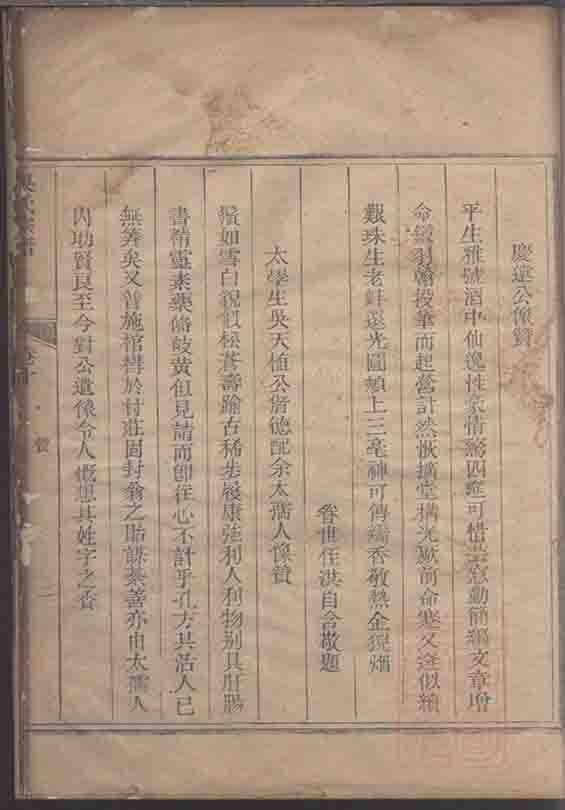 慶連公像贊
平生雅號酒中仙逸性豪情驚四筵可惜芸窓動簡編文章增
命羽翰投筆而起營計然恢擴堂構光厥前命寒又逢似續
艱珠生老蚌還光圓頰上三毫神可傳瓣香敬熱金猊烟
眷世侄洪自含敬題
太學生吳天植公偕德配余太孺人像贊
鬢如雪白貌似松蒼壽踰古稀步履康强利人利物别具肝腸
書精靈素藥備岐黃但見請而卽往心不計乎孔方其活人已
無筭矣又嘗施棺槥於村莊固封翁之貽謀綦善亦由太孺人
内助賢良至今對公遺像令人慨想其姓字之香
吳氏宗譜
贊